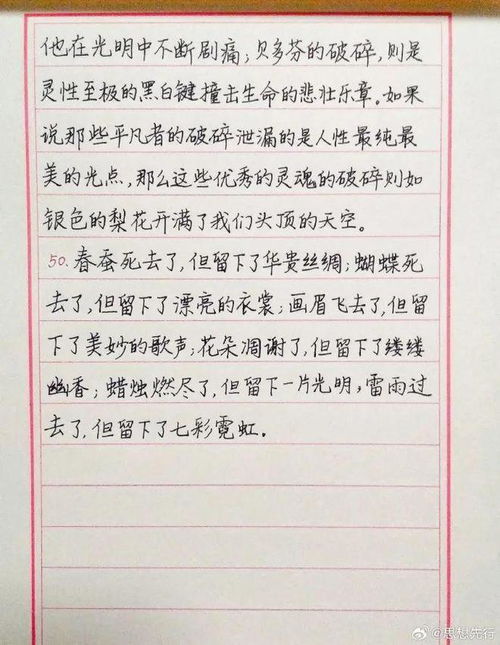 他在光明中不断剧痛；贝多芬的破碎，则是
灵性至极的黑白键撞击生命的悲壮乐章。如果
说那些平凡者的破碎泄漏的是人性最纯最
美的光点，那么这些优秀的灵魂的破碎则如
银色的梨花开满了我们头顶的天空。
50. 春蚕死去了，但留下了华贵丝绸；蝴蝶死
去了，但留下了漂亮的衣裳；画眉飞去了，但留
下了美妙的歌声；花朵凋谢了，但留下了缕缕
幽香；蜡烛燃尽了，但留下一片光明，雷雨过
去了，但留下了七彩霓虹。
@思想先行